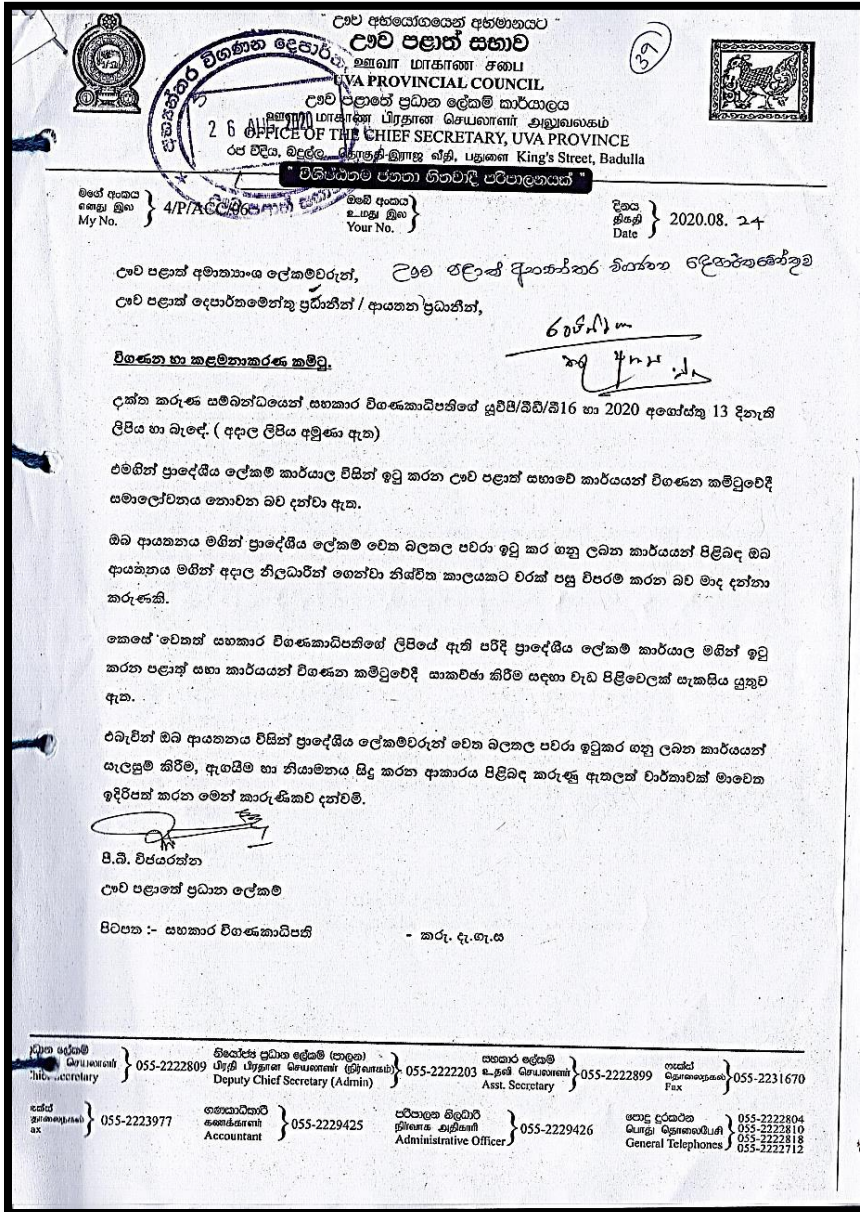 " ඌව අභියෝගයෙන් අභිමානයට "
ඌව පළාත් සභාව
ஊவா மாகாண சபை
UVA PROVINCIAL COUNCIL
ඌව පළාතේ ප්‍රධාන ලේකම් කාර්යාලය
ஊவா மாகாண பிரதான செயலாளர் அலுவலகம்
OFFICE OF THE CHIEF SECRETARY, UVA PROVINCE
රජ වීදිය, බදුල්ල இராஜ வீதி, பதுளை King's Street, Badulla
" විශිෂ්ඨතම ජනතා හිතවාදී පරිපාලනයක් "
39
අභ්‍යන්තර විගණන දෙපාර්
26 AUG 2020
මගේ අංකය
எனது இல
My No.
4/P/ACC/06
ඔබේ අංකය
உமது இல
Your No.
දිනය
திகதி
Date
2020.08. 24
ඌව පළාත් අමාත්‍යාංශ ලේකම්වරුන්, ඌව පළාත් අභ්‍යන්තර විගණන දෙපාර්තමේන්තුව
ඌව පළාත් දෙපාර්තමේන්තු ප්‍රධානීන් / ආයතන ප්‍රධානීන්,
විගණන හා කළමනාකරණ කමිටු.
උක්ත කරුණ සම්බන්ධයෙන් සහකාර විගණකාධිපතිගේ යූවීපී/බීඩී/බී16 හා 2020 අගෝස්තු 13 දිනැති
ලිපිය හා බැඳේ. ( අදාල ලිපිය අමුණා ඇත)
එමගින් ප්‍රාදේශීය ලේකම් කාර්යාල විසින් ඉටු කරන ඌව පළාත් සභාවේ කාර්යයන් විගණන කමිටුවේදී
සමාලෝචනය නොවන බව දන්වා ඇත.
ඔබ ආයතනය මගින් ප්‍රාදේශීය ලේකම් වෙත බලතල පවරා ඉටු කර ගනු ලබන කාර්යයන් පිළිබඳ ඔබ
ආයතනය මගින් අදාල නිලධාරීන් ගෙන්වා නිශ්චිත කාලයකට වරක් පසු විපරම් කරන බව මාද දන්නා
කරුණකි.
කෙසේ වෙතත් සහකාර විගණකාධිපතිගේ ලිපියේ ඇති පරිදි ප්‍රාදේශීය ලේකම් කාර්යාල මගින් ඉටු
කරන පළාත් සභා කාර්යයන් විගණන කමිටුවේදී සාකච්ඡා කිරීම සඳහා වැඩ පිළිවෙලක් සැකසිය යුතුව
ඇත.
එබැවින් ඔබ ආයතනය විසින් ප්‍රාදේශීය ලේකම්වරුන් වෙත බලතල පවරා ඉටුකර ගනු ලබන කාර්යයන්
සැලසුම් කිරීම, ඇගයීම හා නියාමනය සිදු කරන ආකාරය පිළිබඳ කරුණු ඇතුලත් වාර්තාවක් මාවෙත
ඉදිරිපත් කරන මෙන් කාරුණිකව දන්වමි.
පී.බී. විජයරත්න
ඌව පළාතේ ප්‍රධාන ලේකම්
පිටපත :- සහකාර විගණකාධිපති - කරු. දැ.ගැ.ස
ප්‍රධාන ලේකම්
செயலாளர்
Chief Secretary
055-2222809
නියෝජ්‍ය ප්‍රධාන ලේකම් (පාලන)
பிரதி பிரதான செயலாளர் (நிர்வாகம்)
Deputy Chief Secretary (Admin)
055-2222203
සහකාර ලේකම්
உதவி செயலாளர்
Asst. Secretary
055-2222899
ෆැක්ස්
தொலைநகல்
Fax
055-2231670
ෆැක්ස්
தொலைநகல்
ax
055-2223977
ගණකාධිකාරී
கணக்காளர்
Accountant
055-2229425
පරිපාලන නිලධාරී
நிர்வாக அதிகாரி
Administrative Officer
055-2229426
පොදු දුරකථන
பொது தொலைபேசி
General Telephones
055-2222804
055-2222810
055-2222818
055-2222712